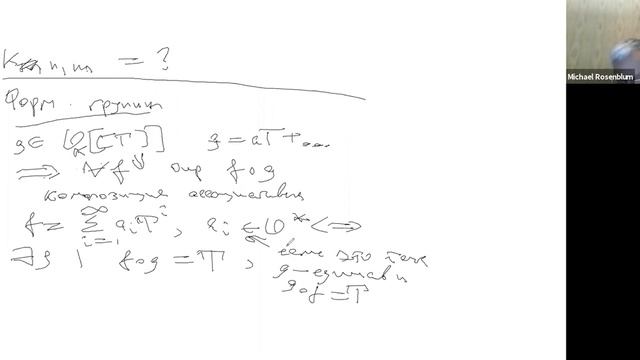 = ?
Форм. группы
g ∈ O_K[[T]] g = aT + ...
⟹ ∀f опр f∘g
композиция ассоциативна
f = ∑_{i=1}^{∞} a_i T^i, a_i ∈ O^* ⟺
∃g | f∘g = T, если это так
g – единств и
g∘f = T
Michael Rosenblum